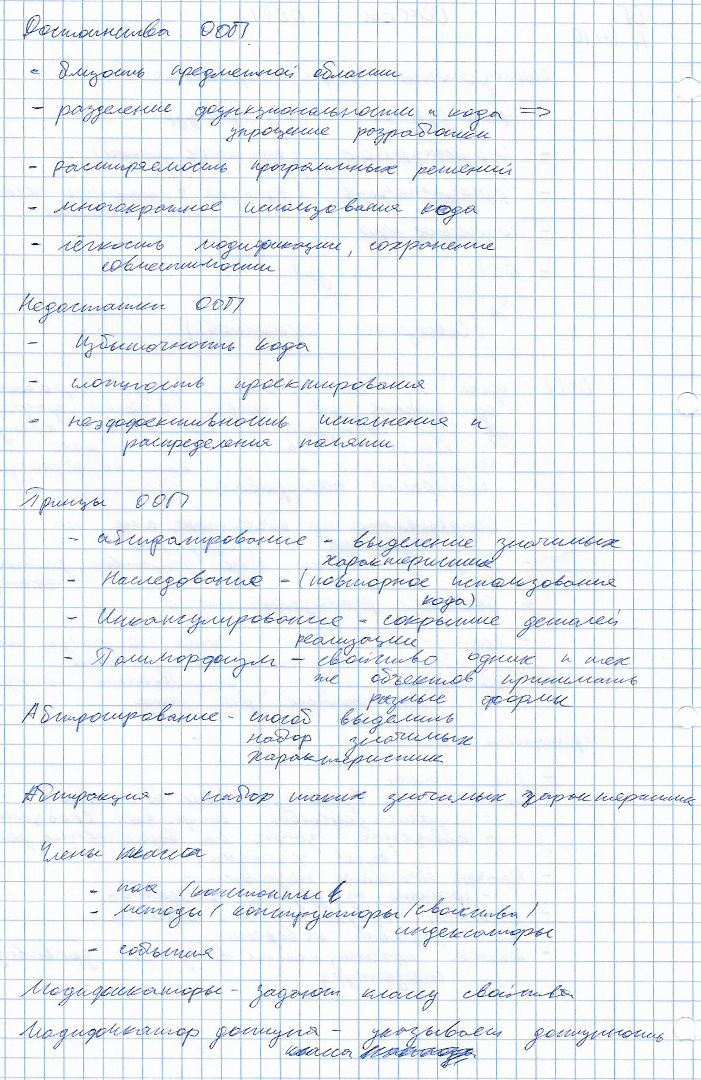 Достоинства ООП
- близость предметной области
- разделение функциональности и кода =>
упрощение разработки
- расширяемость программных решений
- многократное использования кода
- лёгкость модификации, сохранение
совместимости
Недостатки ООП
- Избыточность кода
- сложность проектирования
- неэффективность исполнения и
распределения памяти
Принцы ООП
- абстрагирование - выделение значимых
характеристик
- Наследование - (повторное использование
кода)
- Инкапсулирование - сокрытие деталей
реализации
- Полиморфизм - свойство одних и тех
же объектов принимать
разные формы
Абстрагирование - способ выделить
набор значимых
характеристик
Абстракция - набор таких значимых характеристик
Члены класса
- поля / константы
- методы / конструкторы / свойства /
индексаторы
- события
Модификаторы - задают классу свойства
Модификатор доступа - указывает доступность
класса